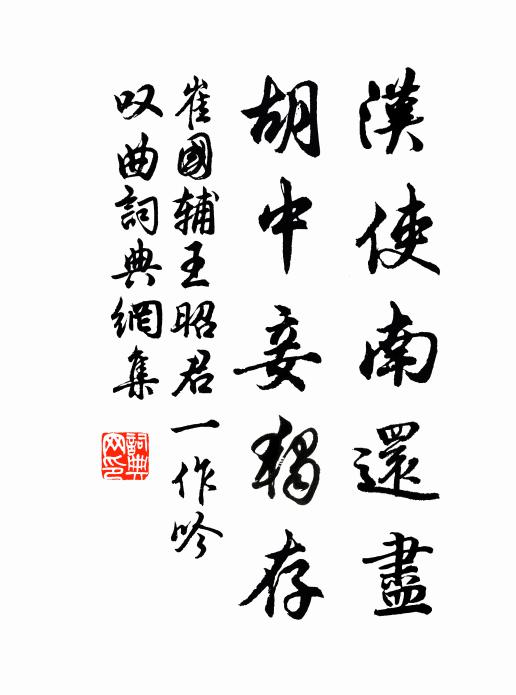 漢使南還盡
胡中妾獨存
崔國輔王昭君一作吟
叹曲詞典網集
詞典
网印